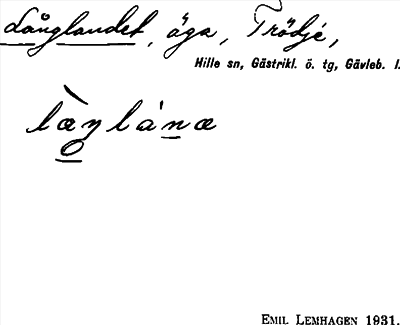 Långlandet, äga, Trödje,
Hille sn, Gästrikl. ö. tg, Gävleb. l.
EMIL LEMHAGEN 1931.